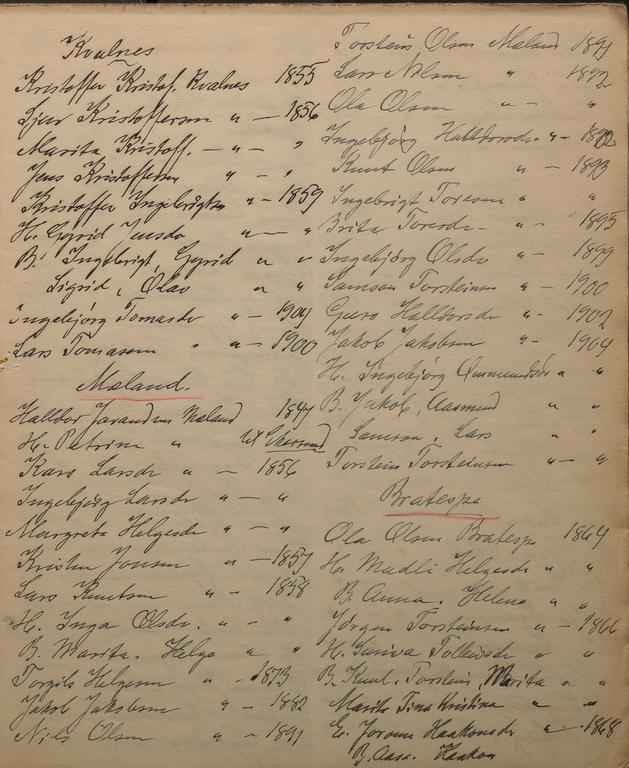 Kvalnes
Kristoffer Kristof. Kvalnes 1855
Sjur Kristoffersen " — 1856
Marita Kristoff. — " — "
Jens Kristoffersen " — "
Kristoffer Ingebrigtsen " — 1859
H. Gyrid Jensdo " — "
B. Ingebrigt, Gyrid " "
Sigrid, Olav " "
Ingebjörg Tomasdr " — 1904
Lars Tomassen " " — 1900
Maland.
Halldor Jorandsen Maland 1847
H. Petrina "
Kari Larsdr " — 1856
Ingebjörg Larsdr " — "
Margreta Helgesdr " — "
Kristen Jonsen " — 1857
Lars Knutsen " — 1858
H. Inga Olsdr. " — "
B. Marita. Helge " "
Torgils Helgesen " — 1873
Jakob Jakobsen " — 1882
Nils Olsen " — 1891
Torstein Olsen Maland 1891
Lars Nilsen " 1892
Ola Olsen " — "
Ingebjörg Halldorsdr " — 1892
Knut Olsen " — 1893
Ingebrigt Toresen " "
Brita Toresdr — " — 1895
Ingebjörg Olsdr " — 1899
Samson Torsteinsen " — 1900
Guro Halldorsdr " — 1902
Jakob Jakobsen " — 1904
H. Ingebjörg " "
B. Jakob, Aasmund " "
Samson, Lars " "
Torstein Torsteinsen " — "
Bratespe
Ola Olsen Bratespe 1864
H. Madli Helgesdr " "
B. Anna. Helena " "
Jörgen Torsteinsen " — 1866
H. Suniva Tolleivsdr " "
B. Knut. Torstein, Marita " "
Marita Tina Kristina " "
E. Jorunn Haakonsdr " — 1868
B. Aasa. Haakon